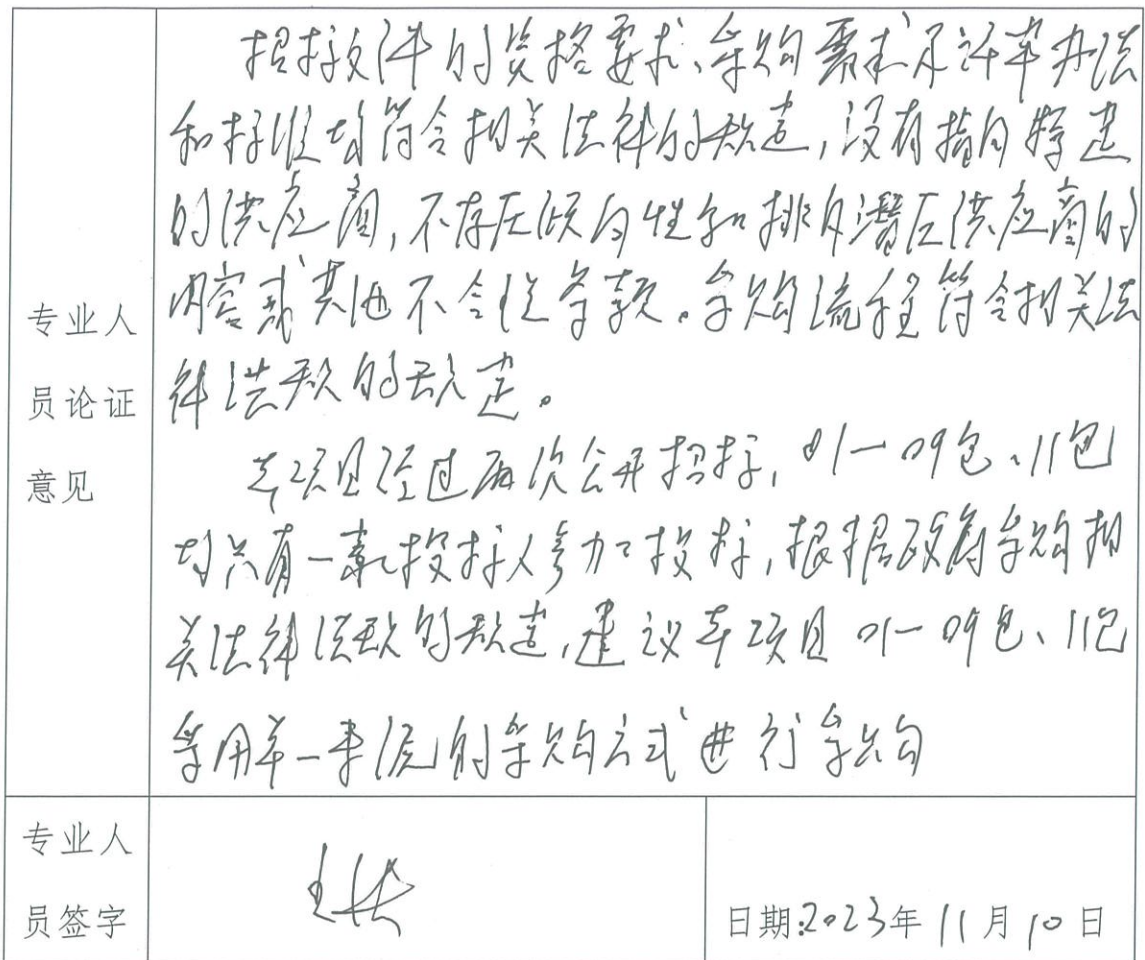 招标文件的资格要求、采购需求及评审办法
和标准均符合相关法律的规定,没有指向特定
的供应商,不存在倾向性和排斥潜在供应商的
内容或其他不合理条款。采购流程符合相关法
律法规的规定。
本项目经过两次公开招标,01一09包、11包
均只有一家投标人参加投标,根据政府采购相
关法律法规的规定,建议本项目01一09包、11包
采用单一来源的采购方式进行采购
专业人
员论证
意见
专业人
员签字
日期:2023年11月10日